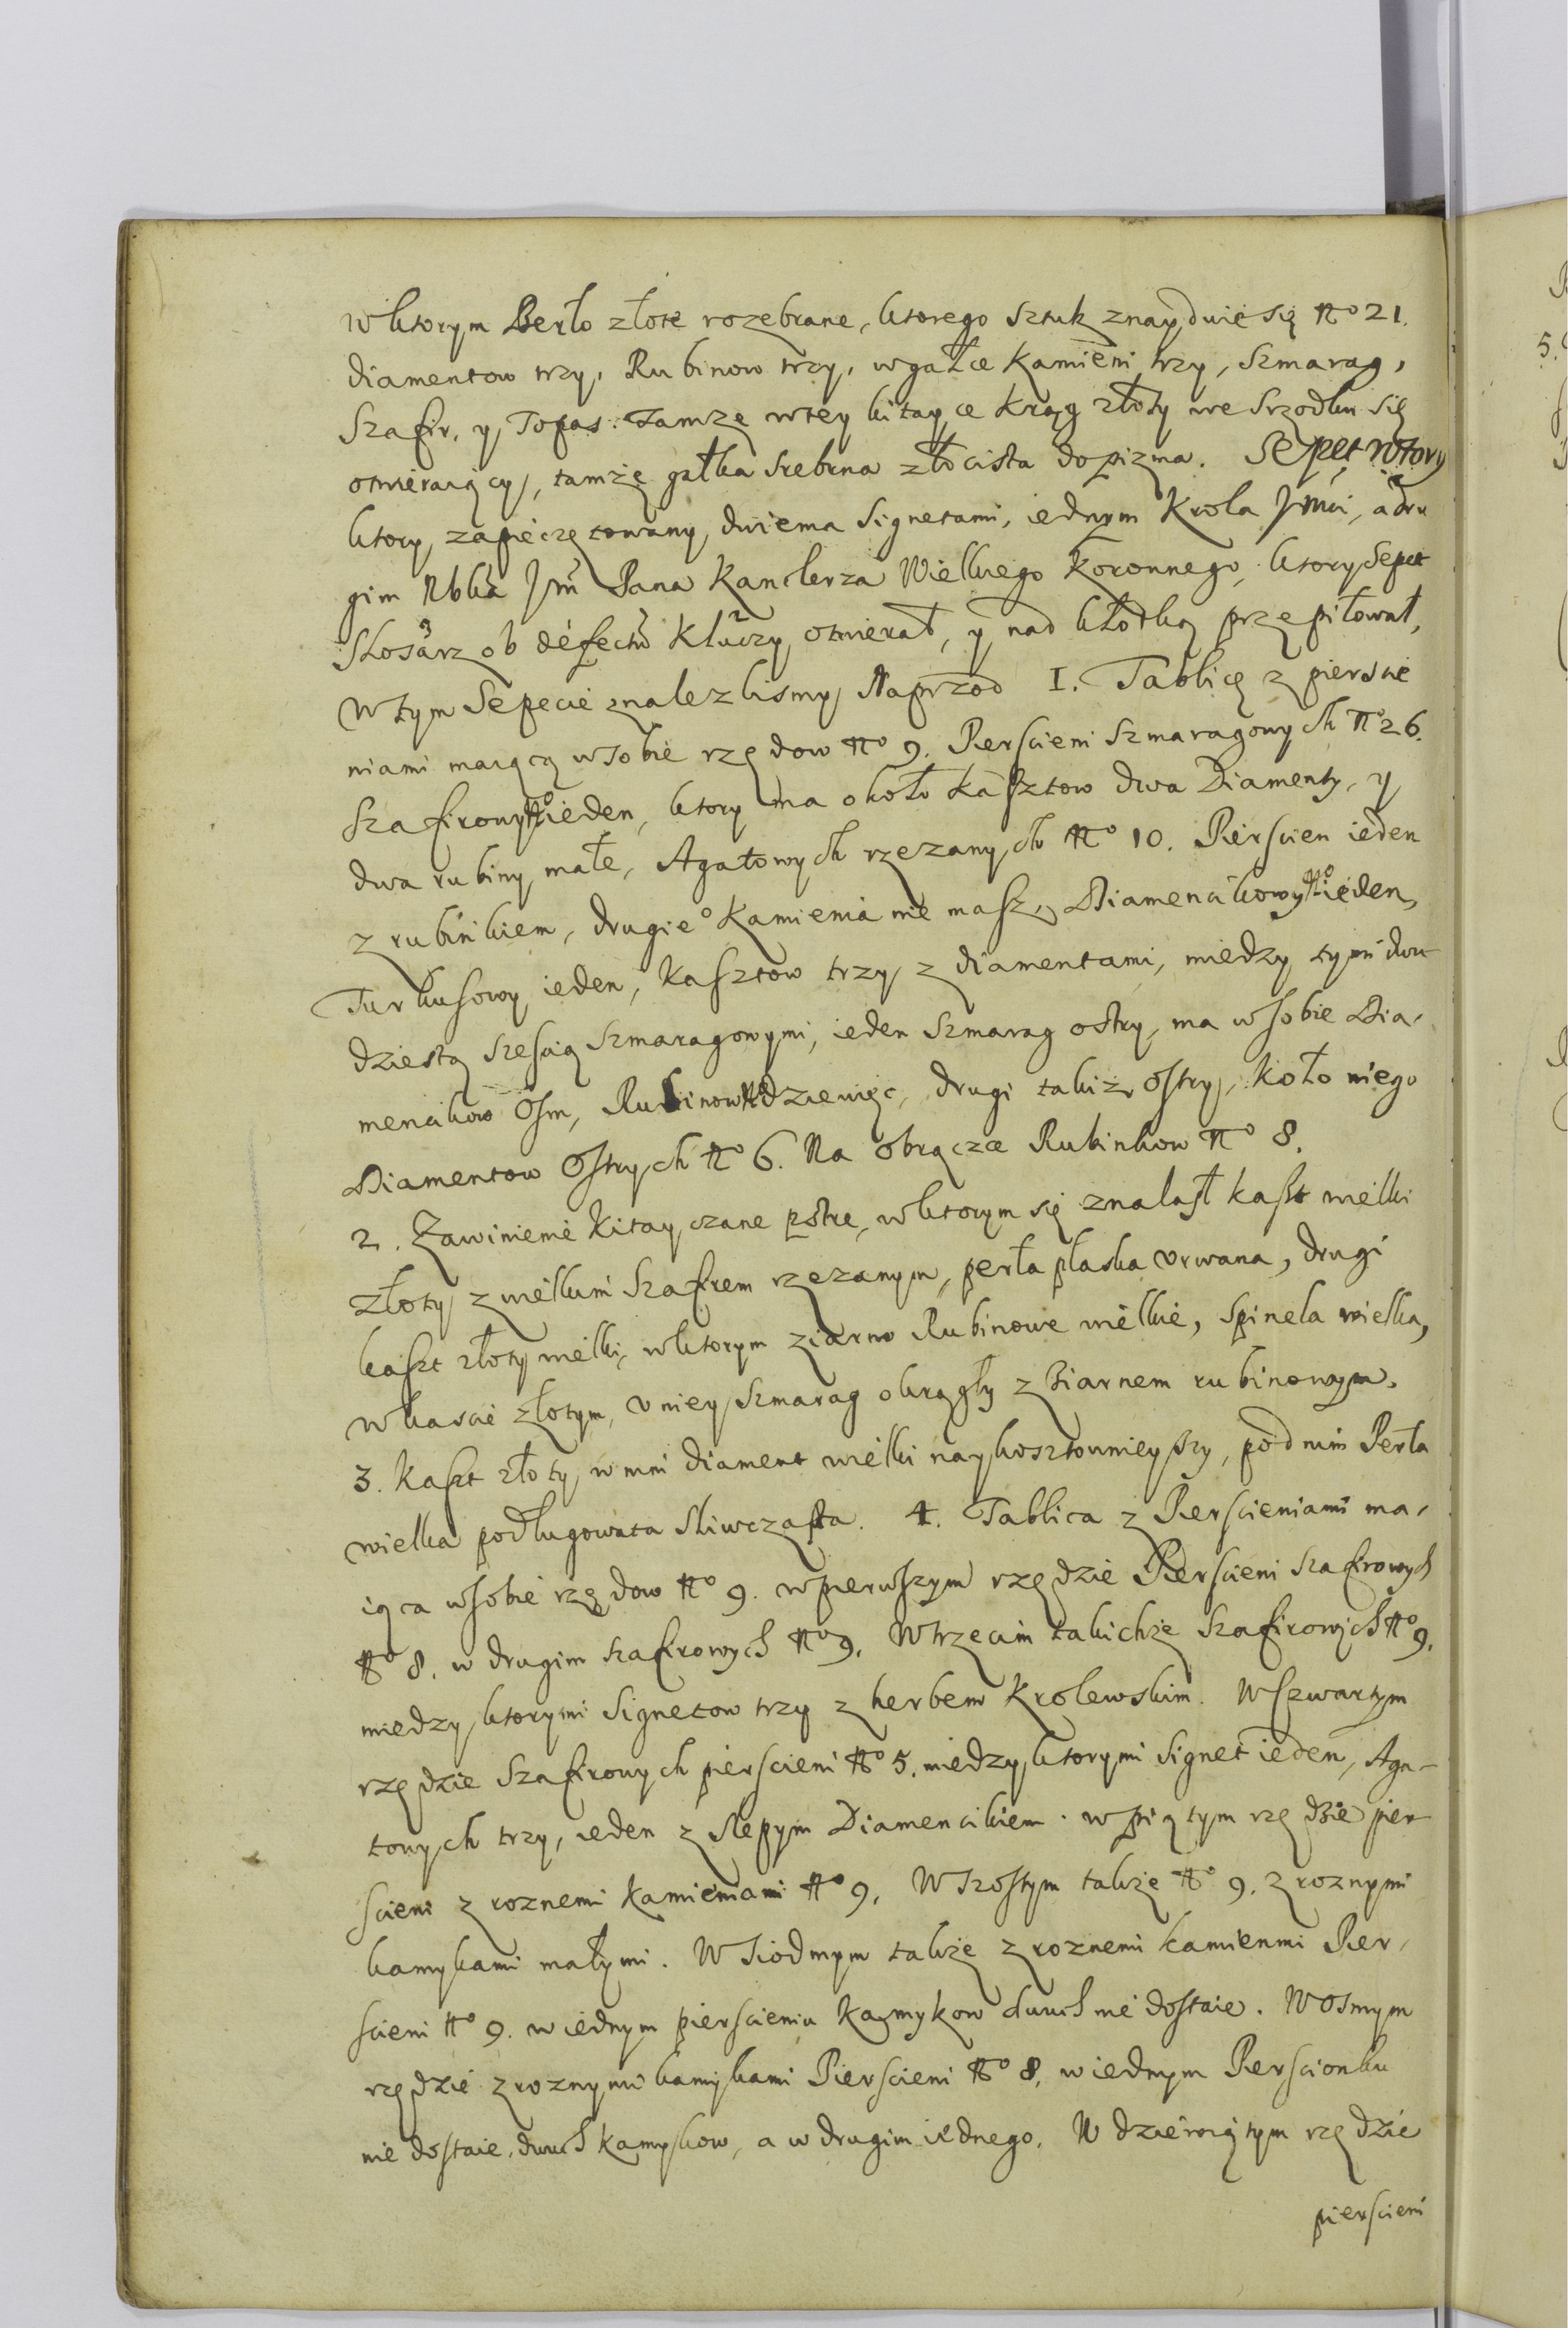 w ktorym Berło złote rozebrane, ktorego sztuk znayduie się No 21.
diamentow trzy, Rubinow trzy, w gałce kamieni trzy, szmarag,
Szafir, y Topas. Tamze w tey kitayce krąg złoty we srzodku się
otwieraiący, tamże gałka srebrna złocista do pizma. Sepet wtory
ktory zapieczętowany dwiema signetami, iednym Krola Jmći, a dru
gim Jm Pana Kanclerza Wielkiego Koronnego, ktory Sepet
Slosarz ob defectu Kluczy otwierał, y nad kłodką przepiłował,
W tym Sepecie znalezlismy Naprzod 1. Tablicę z pierscie
niami maiącą w sobie rzędow No 9. Pierscieni Szmaragowych No 26.
Szafirowy No ieden, ktory ma około kasztow dwa Diamenty, y
dwa rubiny małe, Agatowych rzezanych No 10. Pierscien ieden
z rubinkiem, drugie° kamienia nie masz, Diamencikowy No ieden,
Turkusowy ieden, kasztow trzy z diamentami, miedzy tymi dwu
dziestą szescią szmaragowymi, ieden szmarag ostry, ma w sobie Dia,
mencikow osm, Rubinow No dziewięc, drugi takiż ostry, koło niego
Diamentow Ostrych No 6. Na obrączce Rubinkow No 8.
2. Zawinienie kitayczane pstre, w ktorym się znalazł kaszt wielki
złoty z wielkim Szafirem rzezanym, perła płaska urwana, drugi
kaszt złoty wielki, w ktorym ziarno Rubinowe wielkie, spinela wielka,
w kascie złotym, u niey szmarag okrągły z ziarnem rubinowym.
3. kaszt złoty, w nim diament wielki naykosztownieyszy, pod nim Perła
wielka podługowata sliwczasta. 4. Tablica z Pierscieniami ma,
iąca w sobie rzędow No 9. w pierwszym rzędzie Pierscieni szafirowych
No 8. w drugim szafirowych No 9. W trzecim takichże szafirowych No 9.
miedzy ktorymi Signetow trzy z herbem Krolewskim. W czwartym
rzędzie Szafirowych pierscieni No 5. miedzy ktorymi signet ieden, Aga-
towych trzy, ieden z slepym Diamencikiem. w piątym rzędzie pier
scieni z roznemi kamieniami No 9. W szostym także No 9. z roznymi
kamykami małymi. W siodmym także z roznemi kamienmi Pier,
scieni No 9. w iednym pierscieniu kamykow dwuch nie dostaie. W osmym
rzędzie z roznymi kamykami Pierscieni No 8. w iednym Pierscionku
nie dostaie dwuch kamykow, a w drugim iednego. W dziewiątym rzędzie
pierscieni